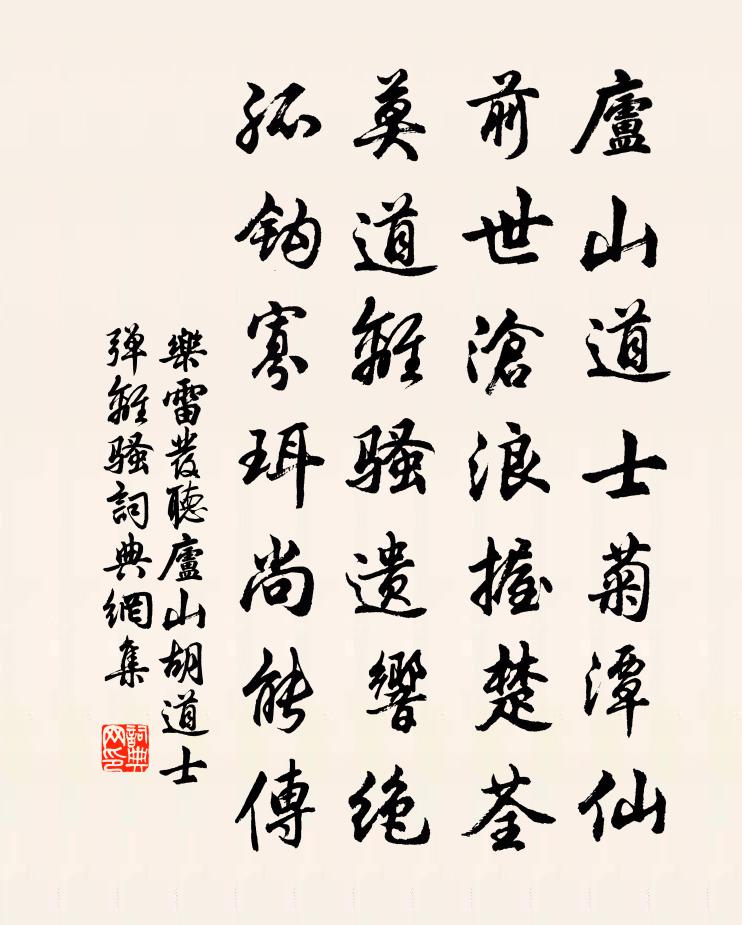 廬山道士菊潭仙
前世滄浪握楚荃
莫道離騷遺響絶
孤鈎寡珥尚能傳
樂雷發聽廬山胡道士
弹離騷詞典網集
詞典
网印